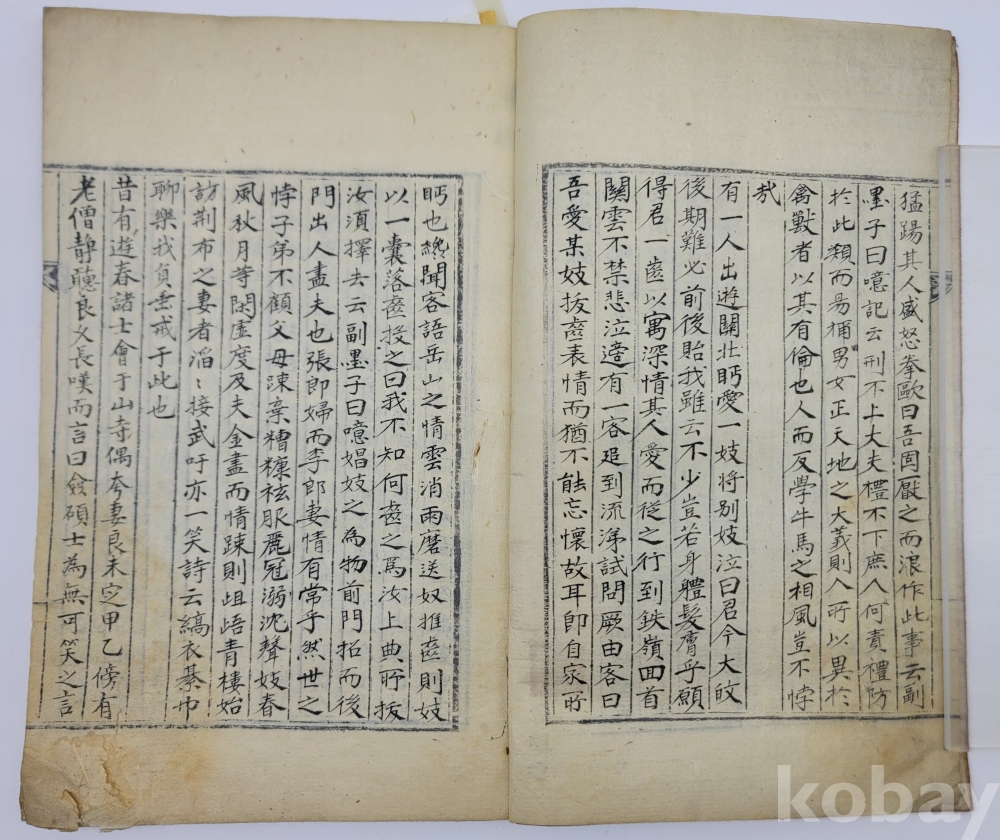 猛踢其人盛怒拳歐曰吾固厭之而浪作此事云副
墨子曰噫記云刑不上大夫禮不下庶人何責禮防
於此類而易稱男女正天地之大義則人所以異於
禽獸者以其有倫也人而反學牛馬之相風豈不悖
哉
有一人出遊關北眄愛一妓將别妓泣曰君今大故
後期難必前後貽我雖云不少豈若身體髮膚乎願
得君一齒以寓深情其人愛而從之行到鉄嶺回首
關雲不禁悲泣遆有一客追到流涕試問厥由客曰
吾愛某妓拔齒表情而猶不能忘懷故耳即自家所
眄也纔聞客語岳山之情雲消雨磨送奴推齒則妓
以一囊落齒投之曰我不知何齒之爲汝上典所拔
汝須擇去云副墨子曰噫娼妓之為物前門拓而後
門出人盡夫也張郎婦而李郎妻情有常乎然世之
悖子弟不顧父母踈棄糟糠袨服麗冠溺沈聲妓春
風秋月等閑虛度及夫金盡而情踈則岨峿青樓始
訪荆布之妻者滔〻接武吁亦一笑詩云縞衣綦巾
聊樂我負垂戒于此也
昔有遊春諸士會于山寺偶夸妻良未定甲乙傍有
老僧静聽良久長嘆而言曰僉碩士為無可笑之言
kobay